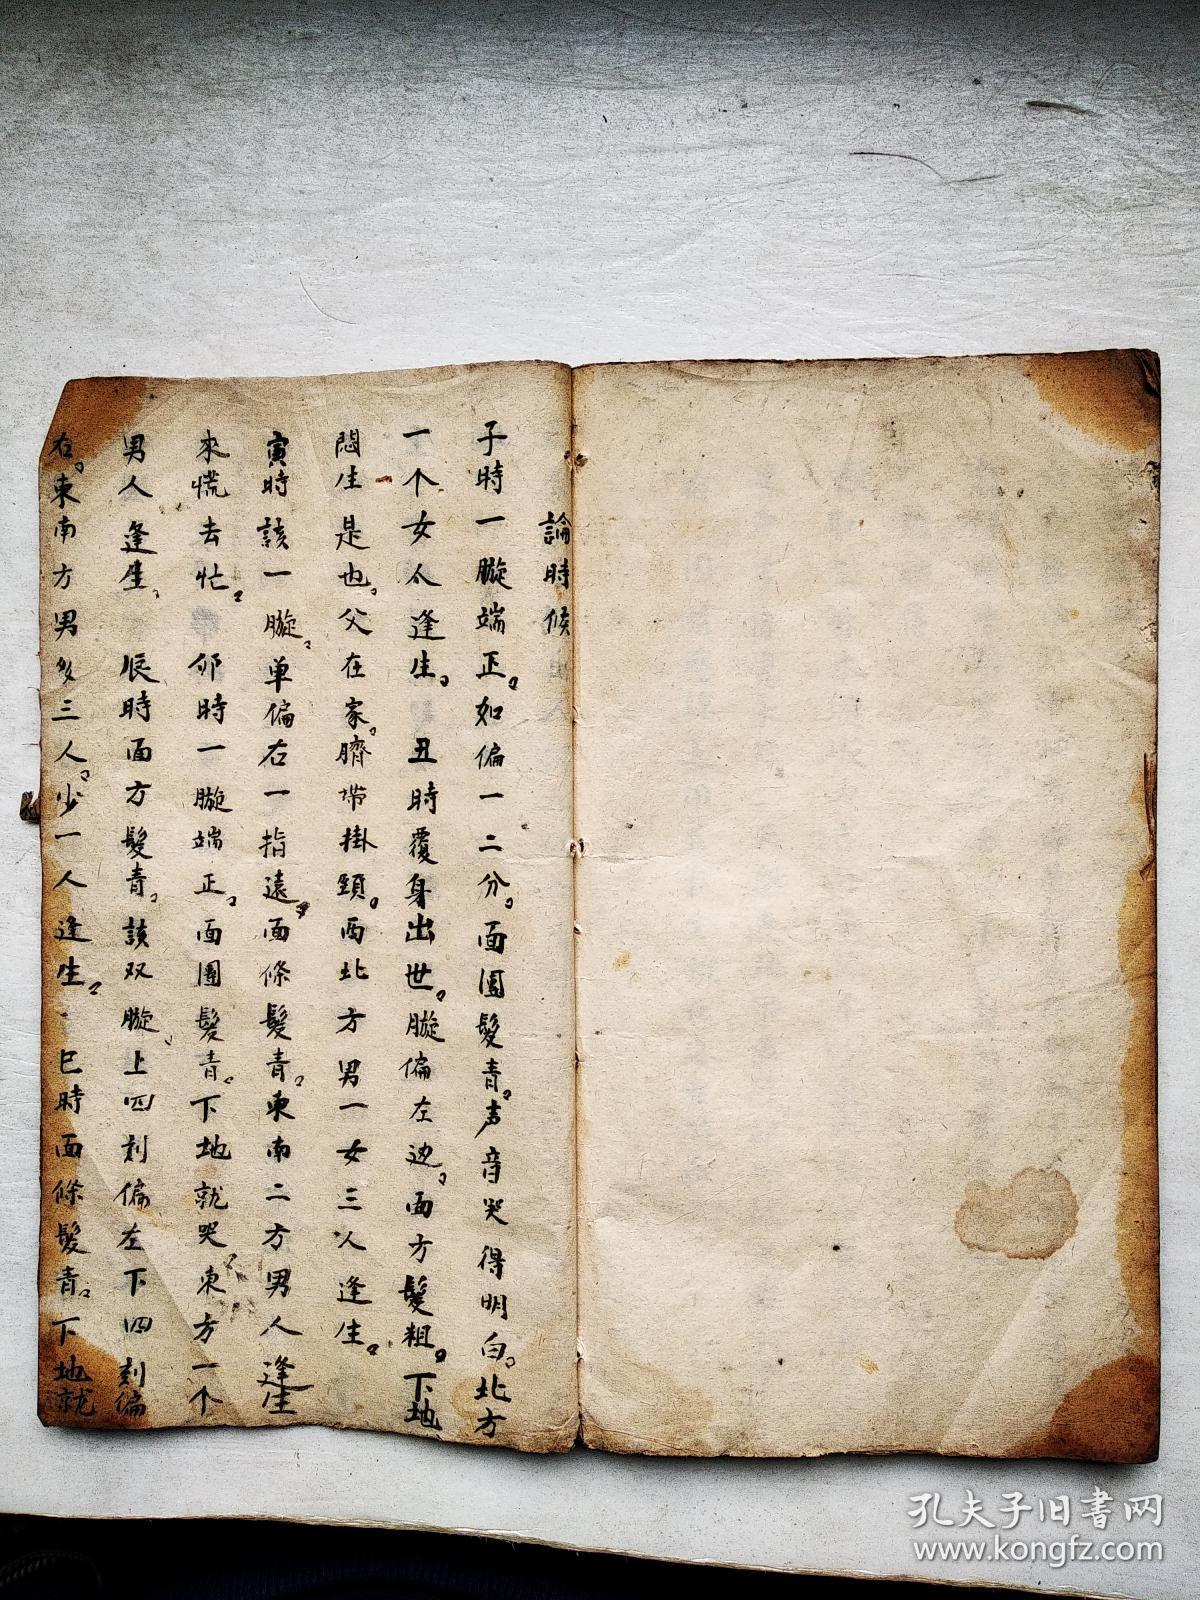 論時候
子時一腚端正。如偏一二分。面團髮青。声音哭得明白。北方
一个女人逢生。丑時覆身出世。腚偏左边。面方髮粗。下地
悶生是也。父在家。臍帶掛頸。西北方男一女三人逢生。
寅時該一腚。单偏右一指遠。面條髮青。東南二方男人逢生
來慌去忙。卯時一腚端正。面團髮青。下地就哭。東方一个
男人逢生。辰時面方髮青。該双腚。上四刻偏左下四刻偏
右。東南方男多三人。少一人逢生。巳時面條髮青。下地就
孔夫子旧書网
www.kongfz.com